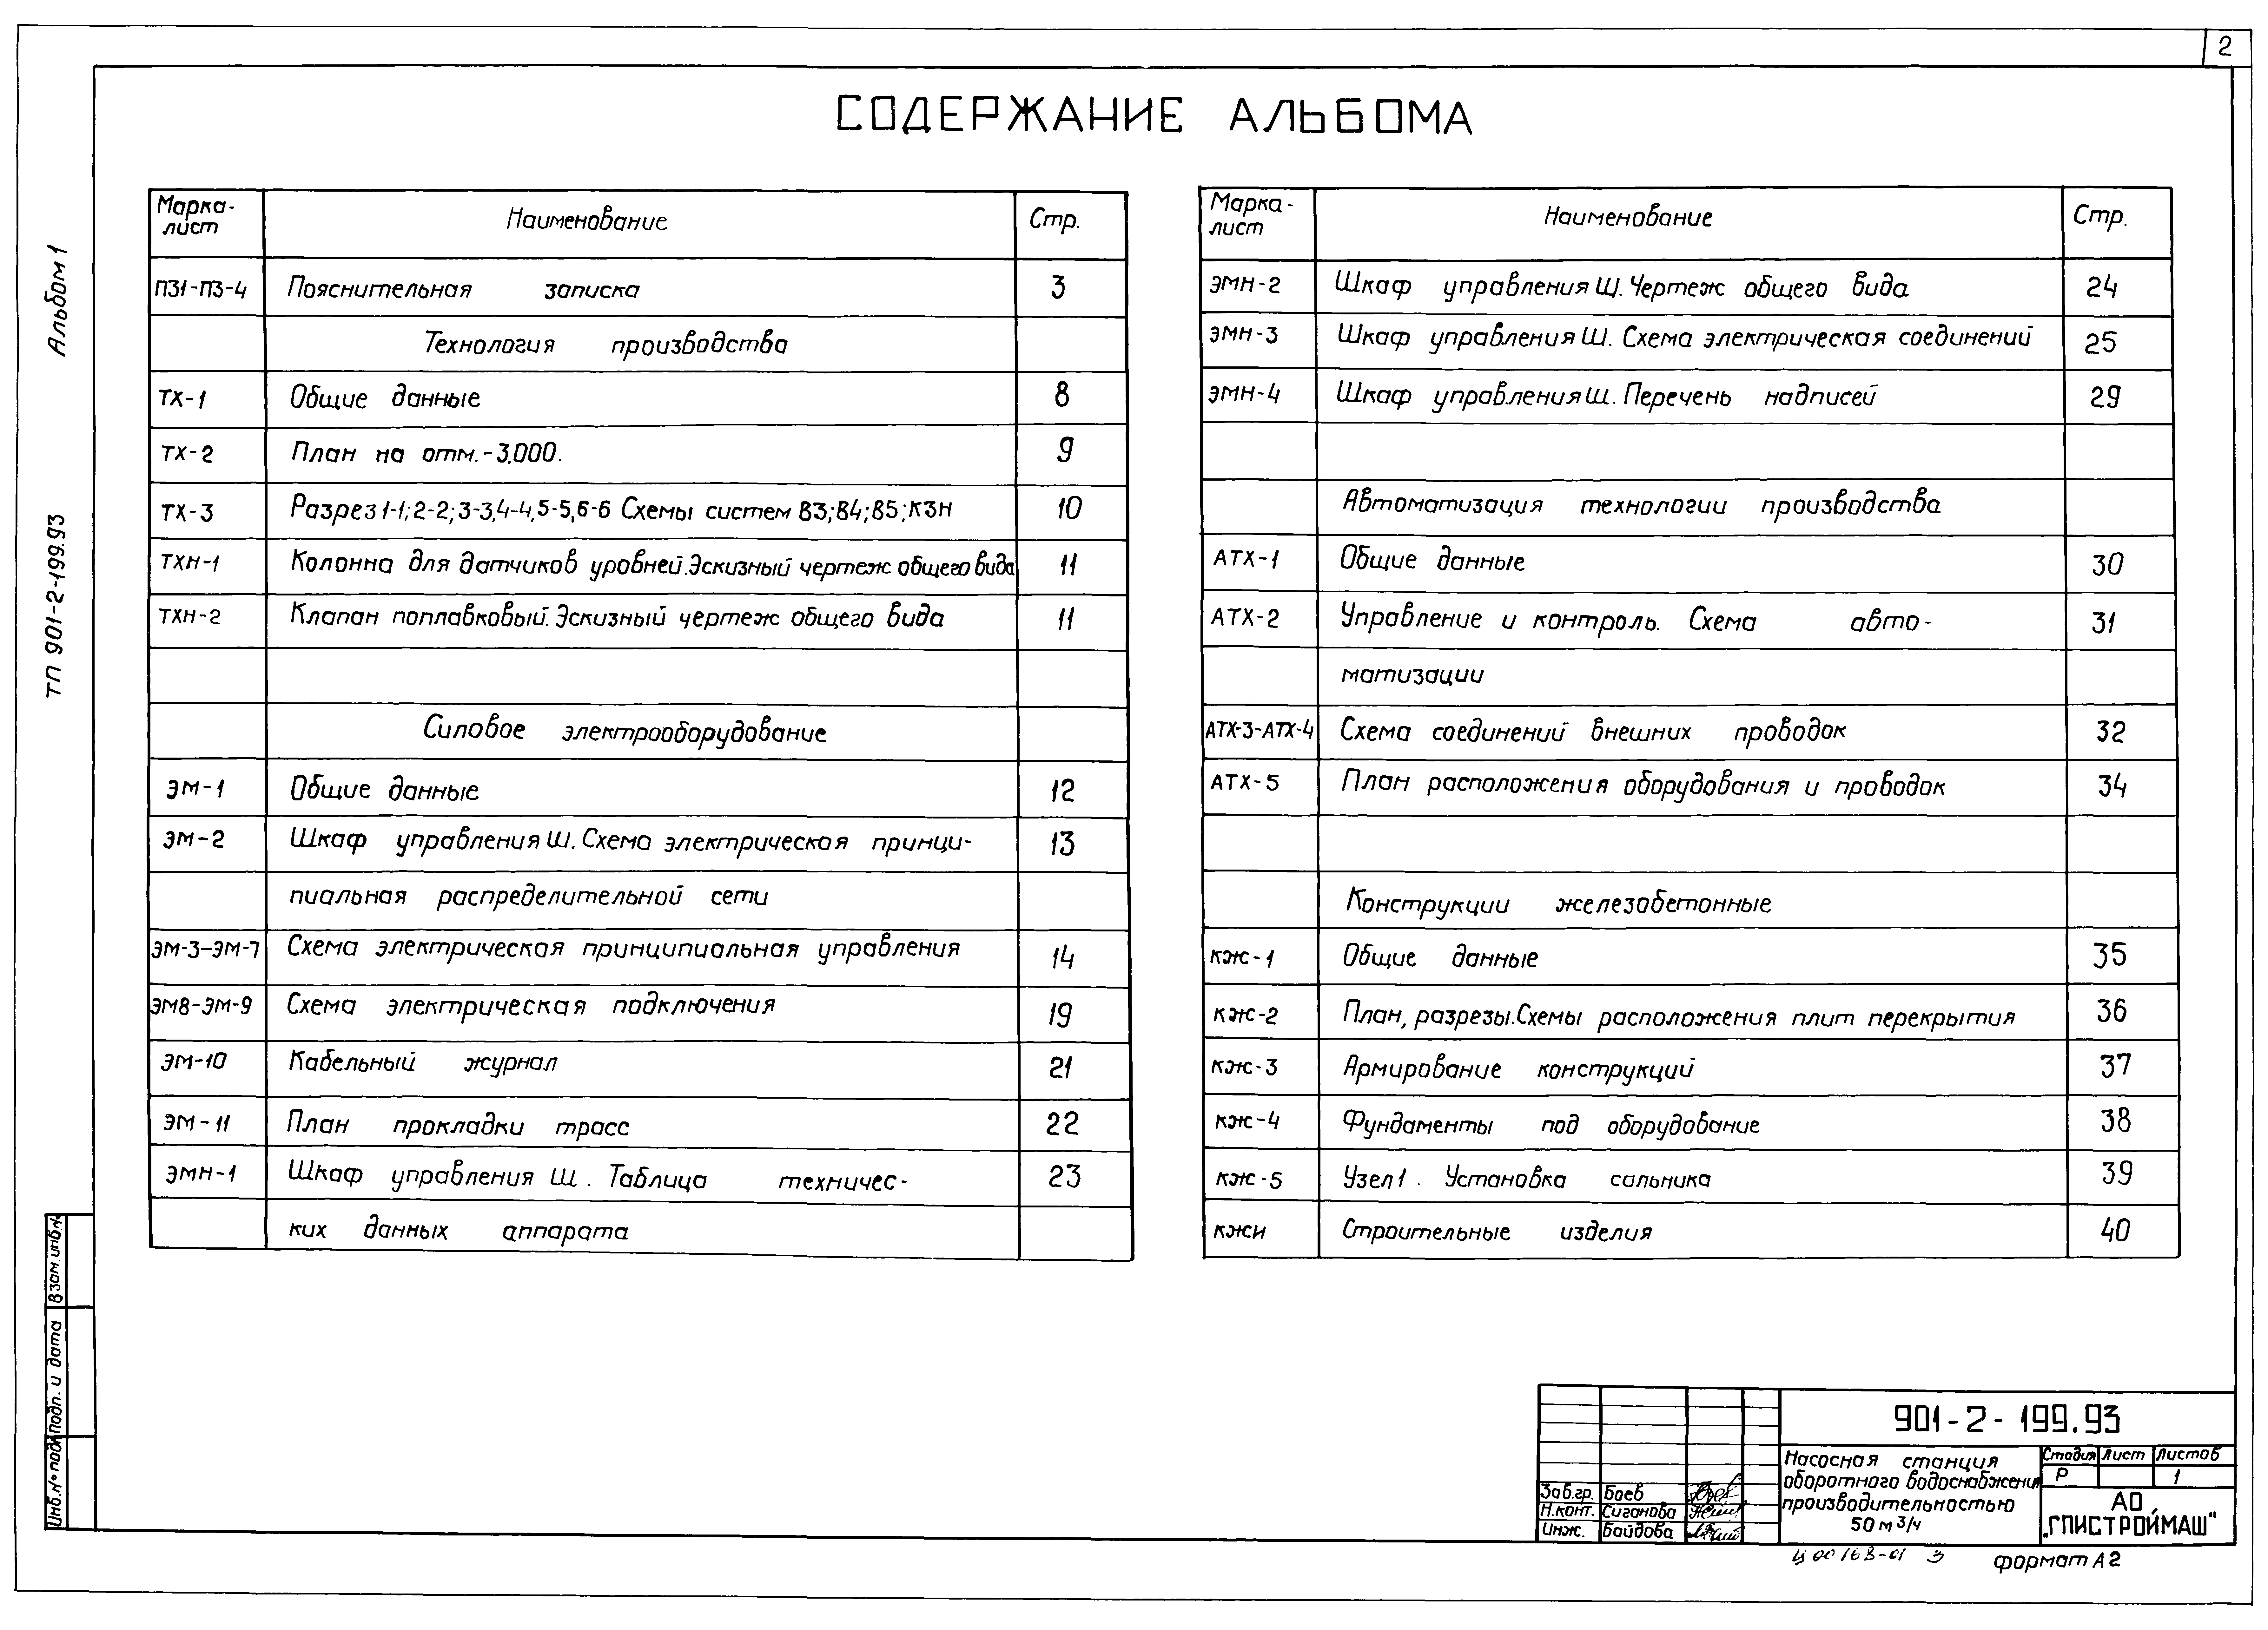 2
СОДЕРЖАНИЕ АЛЬБОМА
Альбом 1
ТП 901-2-199.93
Марка-лист Наименование Стр.
ПЗ1-ПЗ-4 Пояснительная записка 3
Технология производства
ТХ-1 Общие данные 8
ТХ-2 План на отм.-3,000. 9
ТХ-3 Разрез 1-1; 2-2; 3-3, 4-4, 5-5, 6-6 Схемы систем В3; В4; В5; К3Н 10
ТХН-1 Колонна для датчиков уровней. Эскизный чертеж общего вида 11
ТХН-2 Клапан поплавковый. Эскизный чертеж общего вида 11
Силовое электрооборудование
ЭМ-1 Общие данные 12
ЭМ-2 Шкаф управления Ш. Схема электрическая принци- 13
пиальная распределительной сети
ЭМ-3-ЭМ-7 Схема электрическая принципиальная управления 14
ЭМ8-ЭМ-9 Схема электрическая подключения 19
ЭМ-10 Кабельный журнал 21
ЭМ-11 План прокладки трасс 22
ЭМН-1 Шкаф управления Ш. Таблица техничес- 23
ких данных аппарата
Марка-лист Наименование Стр.
ЭМН-2 Шкаф управления Щ. Чертеж общего вида 24
ЭМН-3 Шкаф управления Ш. Схема электрическая соединений 25
ЭМН-4 Шкаф управления Ш. Перечень надписей 29
Автоматизация технологии производства
АТХ-1 Общие данные 30
АТХ-2 Управление и контроль. Схема авто- 31
матизации
АТХ-3-АТХ-4 Схема соединений внешних проводок 32
АТХ-5 План расположения оборудования и проводок 34
Конструкции железобетонные
КЖ-1 Общие данные 35
КЖ-2 План, разрезы. Схемы расположения плит перекрытия 36
КЖ-3 Армирование конструкций 37
КЖ-4 Фундаменты под оборудование 38
КЖ-5 Узел 1. Установка сальника 39
КЖИ Строительные изделия 40
Взам. инв.№
Подп. и дата
Инв.№ подл.
901-2-199.93
Насосная станция
оборотного водоснабжения
производительностью
50 м3/ч
Стадия Лист Листов
Р 1
АО
"ГПИСТРОЙМАШ"
Зав.гр. Боев
Н.конт. Сиганова
Инж. Байдова
Ц00168-01 3
формат А2